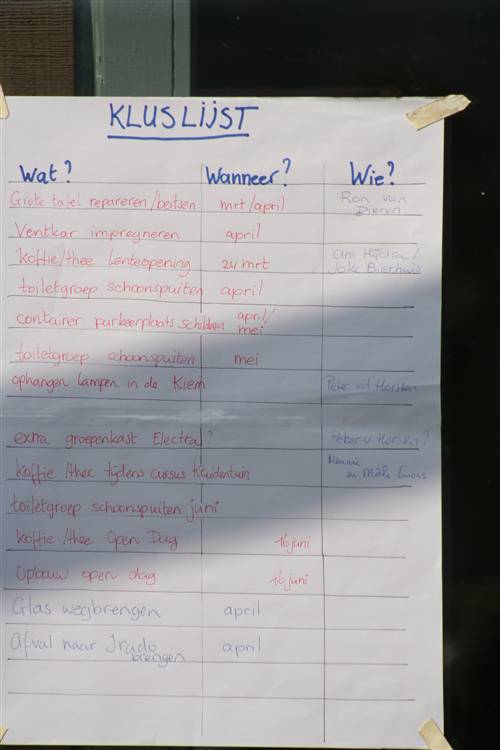 KLUSLIJST
Wat? Wanneer? Wie?
Grote tafel repareren/beitsen mrt/april Ron van Dieren
Ventkar impregneren april
koffie/thee Lenteopening 24 mrt / Joke Bierhuis
toiletgroep schoonspuiten april
container parkeerplaats schilderen april/mei
toiletgroep schoonspuiten mei
ophangen lampen in de Kiem Peter vd Horsten
extra groepenkast Electra? Peter v Horsten?
koffie/thee tijdens cursus Kruidentuin Hennie en
toiletgroep schoonspuiten juni
koffie/thee Open Dag 16 juni
Opbouw open dag 16 juni
Glas wegbrengen april
Afval naar Irado brengen april